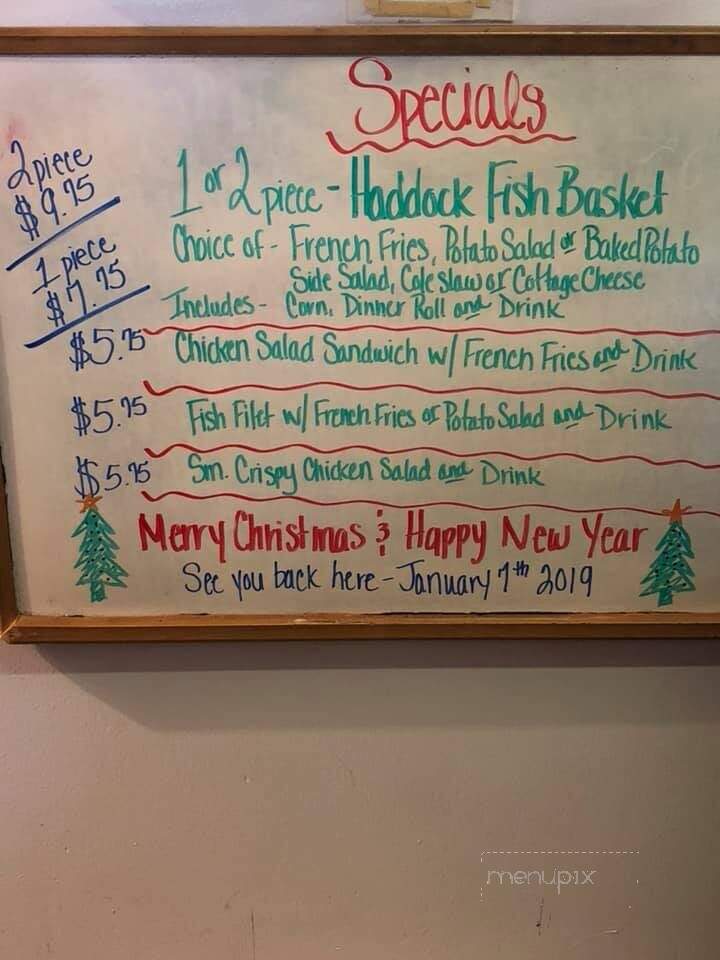 Specials
2 piece
$9.75
1 piece
$7.75
1 or 2 piece - Haddock Fish Basket
Choice of - French Fries, Potato Salad or Baked Potato
Side Salad, Cole slaw or Cottage Cheese
Includes - Corn, Dinner Roll and Drink
$5.75 Chicken Salad Sandwich w/ French Fries and Drink
$5.75 Fish Filet w/ French Fries or Potato Salad and Drink
$5.75 Sm. Crispy Chicken Salad and Drink
Merry Christmas & Happy New Year
See you back here - January 7th 2019
menupix